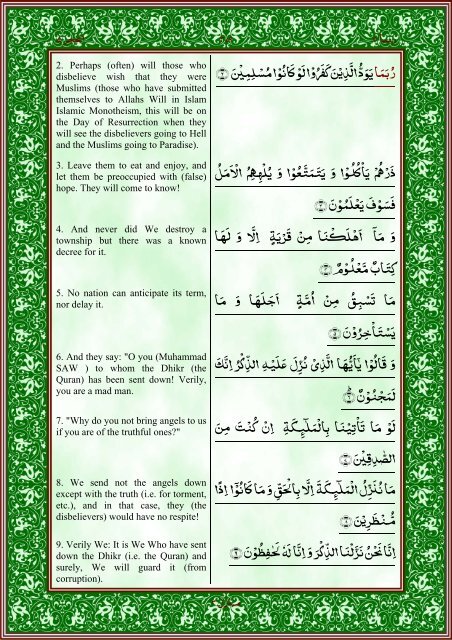 2. Perhaps (often) will those who
disbelieve wish that they were
Muslims (those who have submitted
themselves to Allahs Will in Islam
Islamic Monotheism, this will be on
the Day of Resurrection when they
will see the disbelievers going to Hell
and the Muslims going to Paradise).
رُبَمَا يَوَدُّ الَّذِيْنَ كَفَرُوْا لَوْ كَانُوْا مُسْلِمِيْنَ ﴿۲﴾
3. Leave them to eat and enjoy, and
let them be preoccupied with (false)
hope. They will come to know!
ذَرْهُمْ يَاْكُلُوْا وَ يَتَمَتَّعُوْا وَ يُلْهِهِمُ الْاَمَلُ
فَسَوْفَ يَعْلَمُوْنَ ﴿۳﴾
4. And never did We destroy a
township but there was a known
decree for it.
وَ مَاۤ اَهْلَكْنَا مِنْ قَرْيَةٍ اِلَّا وَ لَهَا
كِتَابٌ مَّعْلُوْمٌ ﴿۴﴾
5. No nation can anticipate its term,
nor delay it.
مَا تَسْبِقُ مِنْ اُمَّةٍ اَجَلَهَا وَ مَا
يَسْتَاْخِرُوْنَ ﴿۵﴾
6. And they say: "O you (Muhammad
SAW ) to whom the Dhikr (the
Quran) has been sent down! Verily,
you are a mad man.
وَ قَالُوْا يٰۤاَيُّهَا الَّذِىْ نُزِّلَ عَلَيْهِ الذِّكْرُ اِنَّكَ
لَمَجْنُوْنٌ ﴿۶﴾
7. "Why do you not bring angels to us
if you are of the truthful ones?"
لَوْ مَا تَاْتِيْنَا بِالْمَلٰٓٮِٕكَةِ اِنْ كُنْتَ مِنَ
الصّٰدِقِيْنَ ﴿۷﴾
8. We send not the angels down
except with the truth (i.e. for torment,
etc.), and in that case, they (the
disbelievers) would have no respite!
مَا نُنَزِّلُ الْمَلٰٓٮِٕكَةَ اِلَّا بِالْحَقِّ وَ مَا كَانُوْۤا اِذًا
مُّنْظَرِيْنَ ﴿۸﴾
9. Verily We: It is We Who have sent
down the Dhikr (i.e. the Quran) and
surely, We will guard it (from
corruption).
اِنَّا نَحْنُ نَزَّلْنَا الذِّكْرَ وَ اِنَّا لَهٗ لَحٰفِظُوْنَ ﴿۹﴾